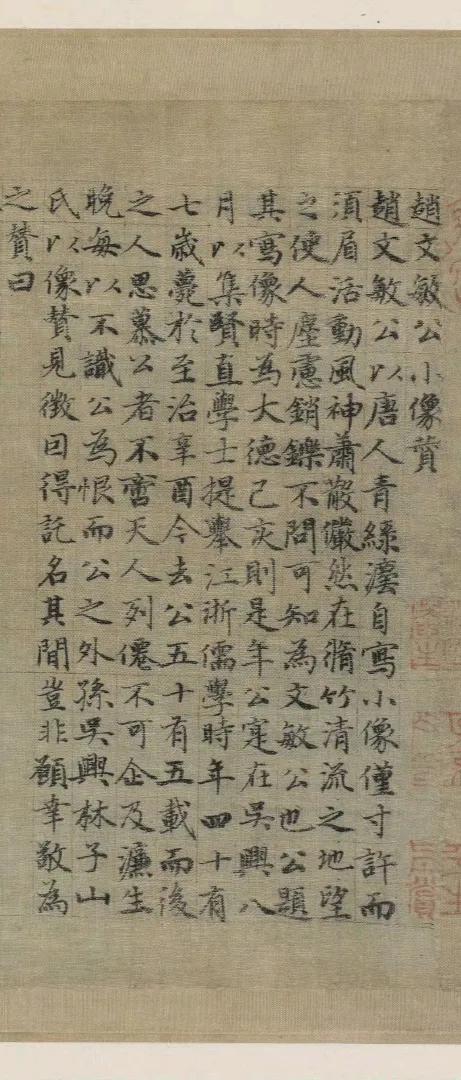 趙文敏公小像贊
趙文敏公以唐人青綠濃自寫小像僅寸許而
須眉活動風神蕭散儼然在脩竹清流之地望
之使人塵慮銷鑠不問可知為文敏公也公題
其寫像時為大德己亥則是年公寔在吳興八
月以集賢直學士提舉江浙儒學時年四十有
七歲薨於至治辛酉今去公五十有五載而後
之人思慕公者不啻天人列僊不可企及濂生
晚每以不識公為恨而公之外孫吳興林子山
氏以像贊見徵因得託名其間豈非顧幸敬為
之贊曰